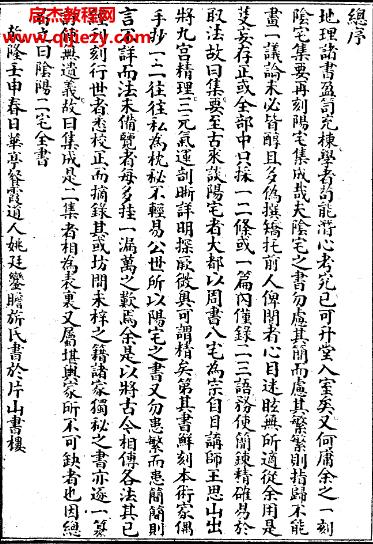 總序
地理諸書盈笥充棟學者苟能潛心考究已可升堂入室矣又何庸余之一刻
陰宅集要再刻陽宅集成哉夫陰宅之書勿慮其簡而慮其繁繁則指歸不能
畫一議論未必皆醇且多偽撰矯托前人俾閱者心目迷眩無所適從余用是
芟妄存正或全部中只採一二條或一篇內僅錄二三語務使簡鍊精確易於
取法故曰集要至古來談陽宅者大都以周書八宅為宗自日講師王思山出
將九宮精理三元氣運剖晰詳明探厥微奧可謂精矣第其書鮮刻本術家偶
手抄一二往往私為枕秘不輕易公世所以陽宅之書又勿患繁而患簡簡則
言不詳而法未備覽者每多挂一漏萬之歎焉余是以將古今相傳各法其已
刻行世者悉校正而摘錄其或坊間未梓之籍諸家獨秘之書亦逐一纂
使無遺義故曰集成是二集者相為表裏又屬堪輿家所不可缺者也因總
之曰陰陽二宅全書
乾隆壬申春日華亭餐霞道人姚廷鑾瞻旂氏書於片山書樓
杰教程网